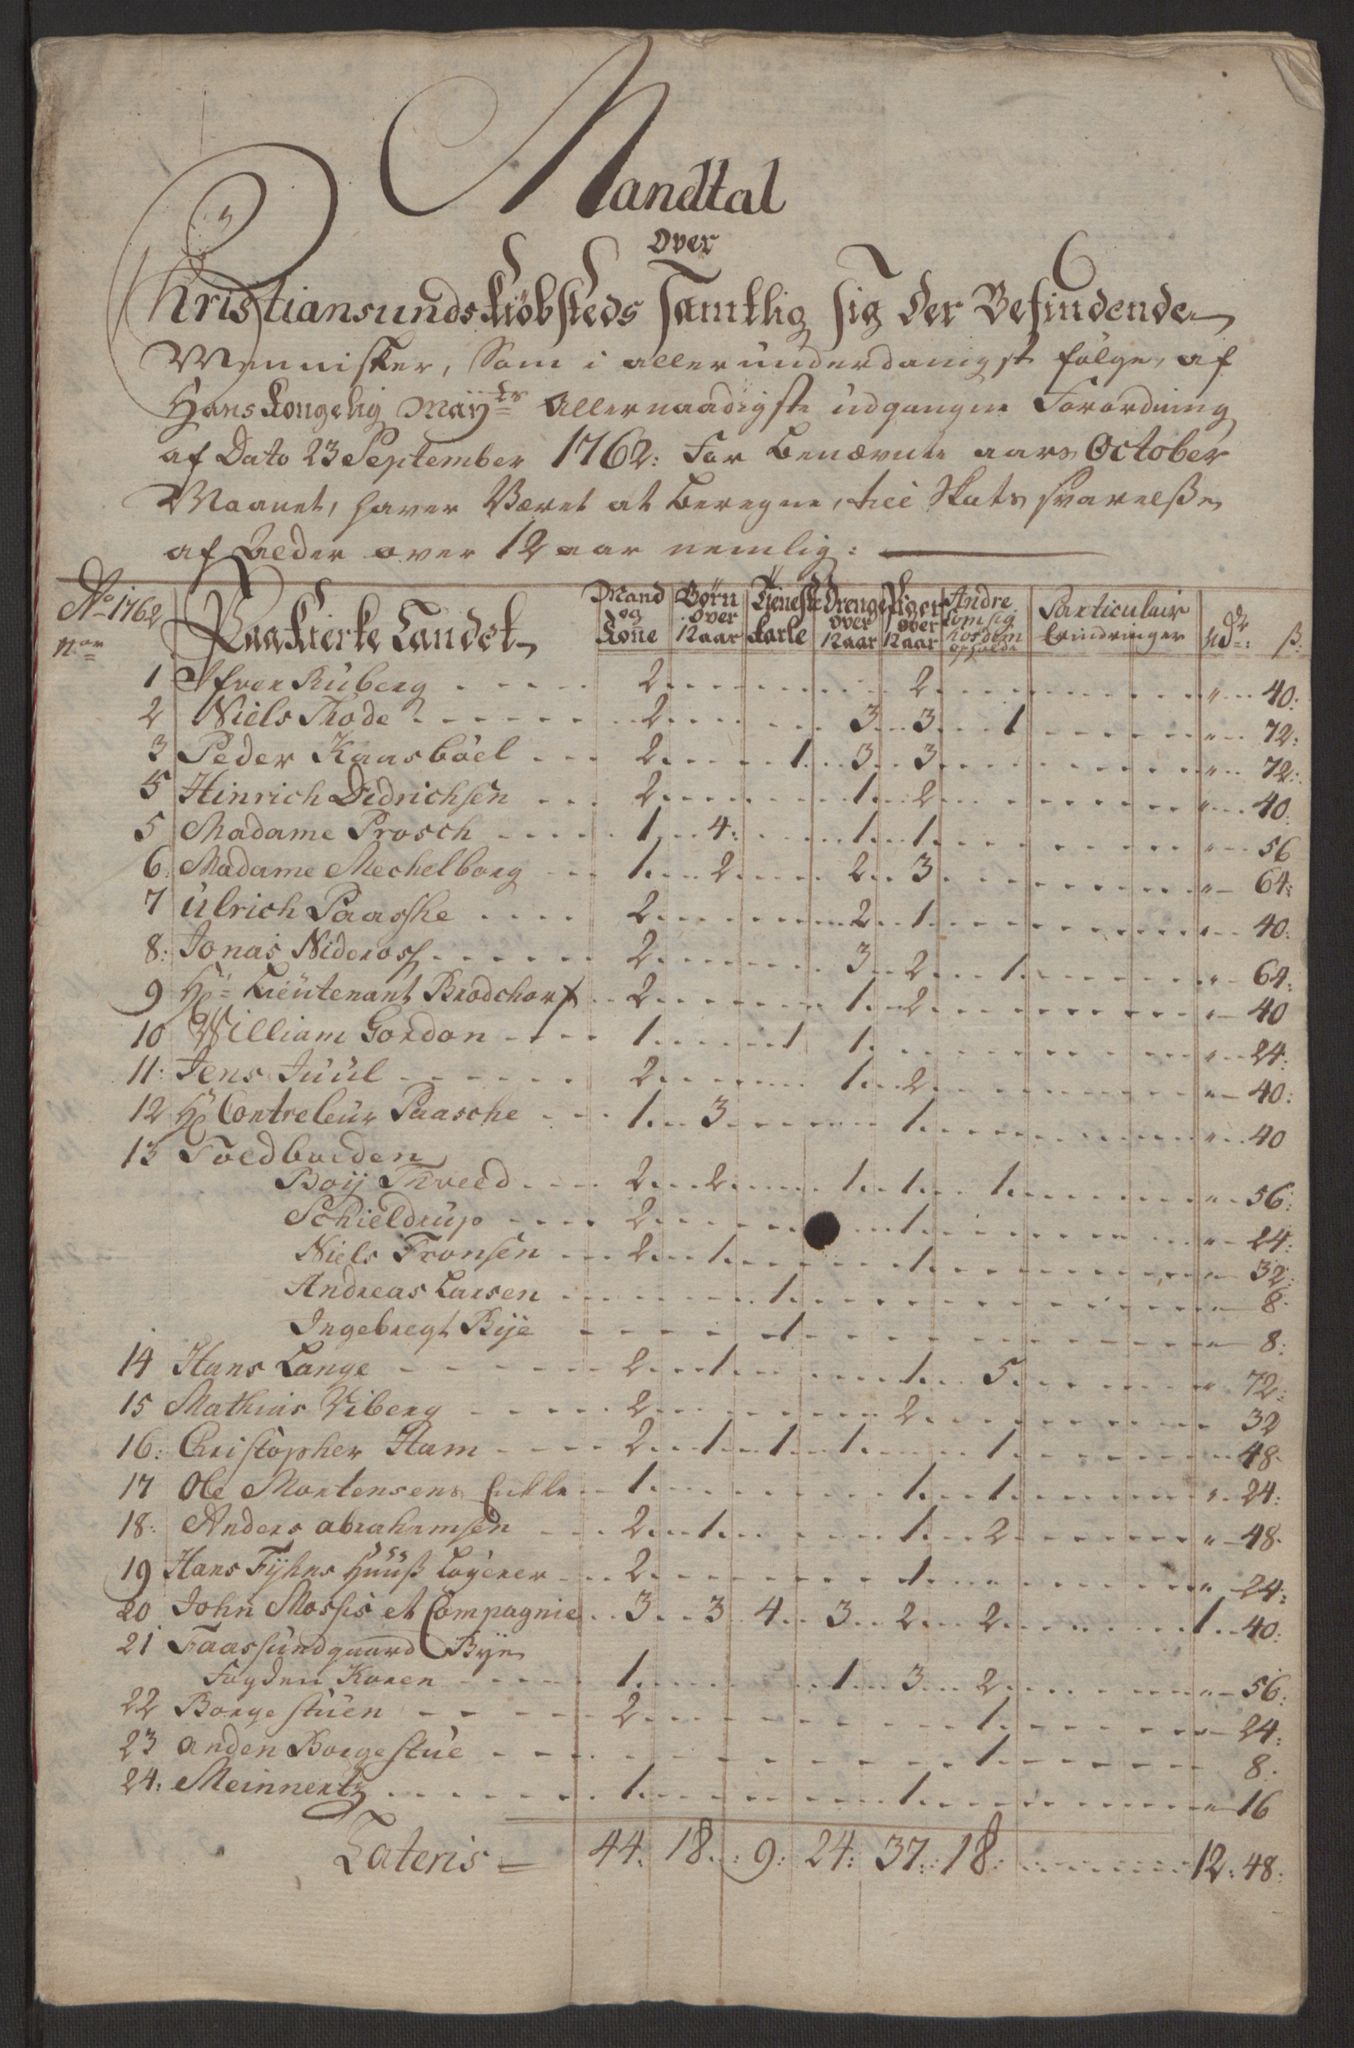 Mandtal
over
Christiansunds Kiøbsteds Samtlig sig der Befindende
Mennisker, Som i allerunderdanigst følge, af
Hans Kongelig Mayts Allernaadigste udgangne Forordning
af Dato 23 September 1762: For benævnte aars October
Maanet, haver Været at beregne, til Skats svarelße
af Alder over 12 aar nemlig:
Ao 1762 Paa Kierke Landet Mand og Kone Børn over 12 aar Tieneste Karle Drenge over 12 aar Piger over 12 aar Andre som sig hos dem opholde Particulair Erindringer rdr ß
1 Ifver Ruberg 2 2 " 40:
2 Niels Thode 2 3 3 1 " 72:
3 Peder Kaasbøel 2 1 3 3 " 72:
5 Hinrich Didrichsen 2 1 2 " 40
5 Madame Prosch 1 4: 1 1 " 56
6: Madame Mechelborg 1 2 2 3 " 64:
7 Ulrich Paasche 2 2 1 " 40:
8: Jonas Nideros 2 3 2 1 " 64:
9 Hr Lieutenant Brodchorf 2 1 2 " 40
10 William Gordon 1 1 1 " 24:
11: Jens Juul 2 1 2 " 40:
12 Hr Contreleur Paasche 1 3 1 " 40
13 Toldboeden
Boij Tveed 2 2 1 1 1 " 56:
Schieldrup 2 1 " 24:
Niels Fronsen 2 1 1 " 32:
Andreas Larsen 1 " 8:
Ingebregt Bije 1 " 8:
14 Hans Lange 2 1 1 5 " 72:
15 Mathias Viberg 2 2 32
16: Christopher Ham 2 1 1 1 1 48:
17 Ole Mortensens Enkke 1 1 1 " 24:
18: Anders abrahamsen 2 1 1 2 " 48:
19 Hans Fyhns Huuß Løyerer 2 1 " 24:
20 John Mosses et Compagnie 3 3 4 3 2 2 1 40:
21 Faassundgaard Bye
Fogden Koren 1 1 3 2 " 56:
22 Borgestuen 2 1 " 24:
23 anden Borgestue 1 8:
24: Meinnertz 1 1 " 16
Lateris 44: 18: 9: 24: 37: 18: 12: 48: